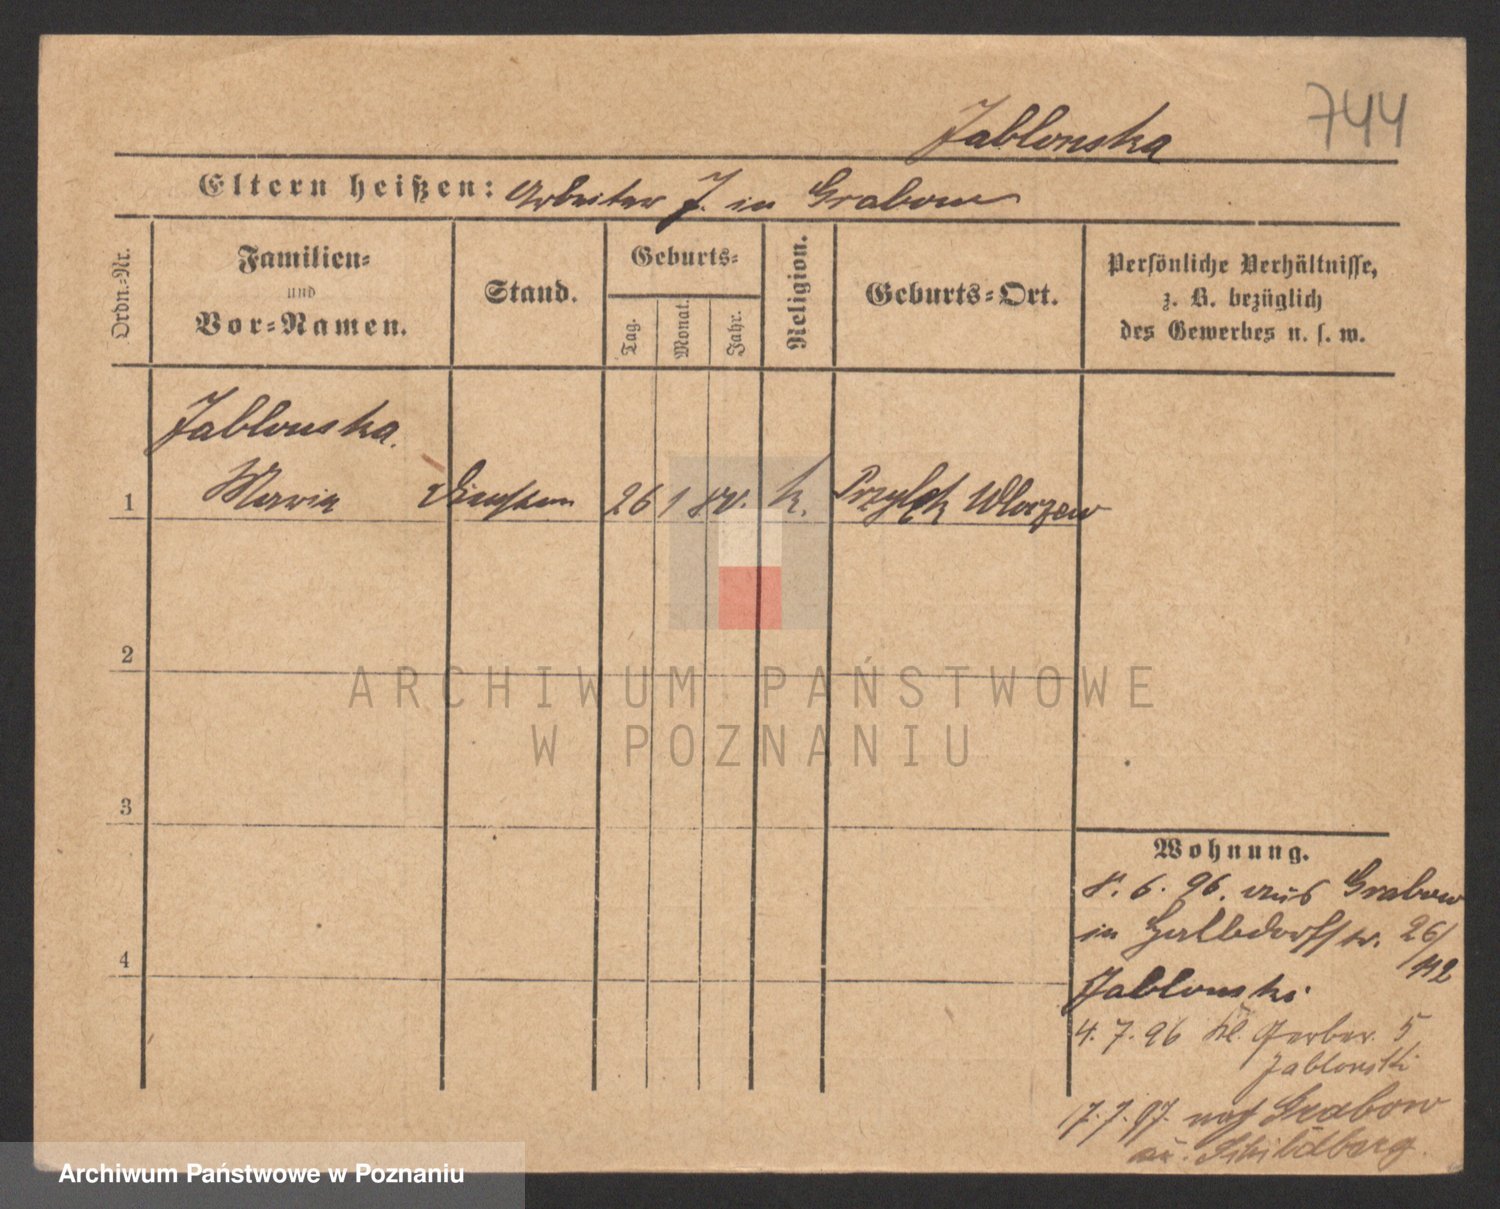 744
Jablonska
Eltern heißen: Arbeiter J. in Grabow
Ordn.-Nr.
Familien-
und
Vor-Namen.
Stand.
Geburts-
Tag.
Monat.
Jahr.
Religion.
Geburts-Ort.
Persönliche Verhältnisse,
z. B. bezüglich
des Gewerbes u. s. w.
Jablonska.
1 Maria 26 1 k.
2
3
4
ARCHIWUM PAŃSTWOWE
W POZNANIU
Wohnung.
8. 6. 96. aus Grabow
in Halbdorfstr. 26/
Jablonski.
4. 7. 96 Kl. Gerber. 5
Jablonski
17.7.97. nach Grabow
Schildberg.
Archiwum Państwowe w Poznaniu